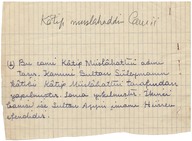 Kâtip muslahaddin Camii
(1) Bu cami Kâtip Muslâhattin adını
Taşır. Kanuni Sultan Süleymanın
Kâtibi Kâtip Muslâhattin tarafından
yapılmıştır sonra yıkılmıştır. İkinci
banisi ise Sultan annesi
efendidir.